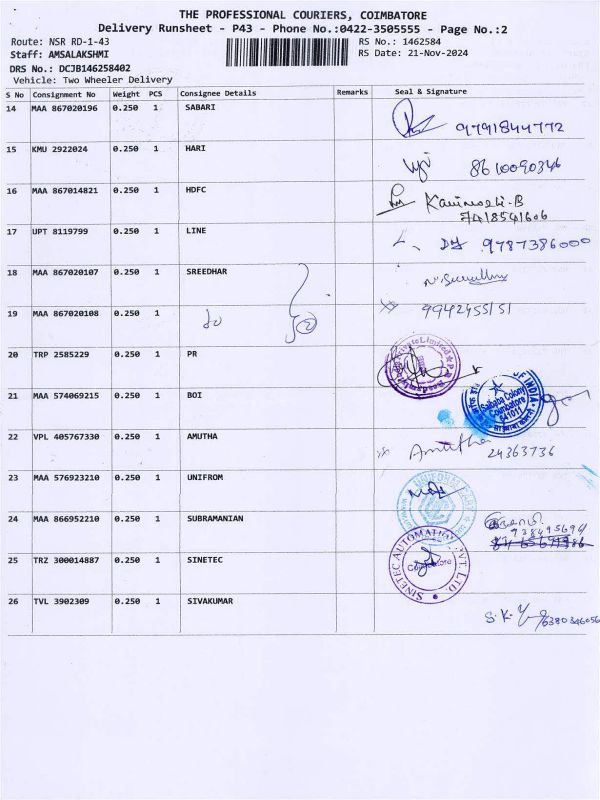 THE PROFESSIONAL COURIERS, COIMBATORE
Delivery Runsheet - P43 - Phone No.:0422-3505555 - Page No.:2
Route: NSR RD-1-43 RS No.: 1462584
Staff: AMSALAKSHMI RS Date: 21-Nov-2024
DRS No.: DCJB146258402
Vehicle: Two Wheeler Delivery
S No Consignment No Weight PCS Consignee Details Remarks Seal & Signature
14 MAA 867020196 0.250 1 SABARI 9791844772
15 KMU 2922024 0.250 1 HARI 8610090346
16 MAA 867014821 0.250 1 HDFC
7418541606
17 UPT 8119799 0.250 1 LINE 9787386000
18 MAA 867020107 0.250 1 SREEDHAR
19 MAA 867020108 0.250 1 do 2 9942455151
20 TRP 2585229 0.250 1 PR
21 MAA 574069215 0.250 1 BOI Saibaba Colony Coimbatore 641011
22 VPL 405767330 0.250 1 AMUTHA Amutha 24363736
23 MAA 576923210 0.250 1 UNIFROM
24 MAA 866952210 0.250 1 SUBRAMANIAN
25 TRZ 300014887 0.250 1 SINETEC SINETEC AUTOMATION PVT. LTD. Coimbatore
26 TVL 3902309 0.250 1 SIVAKUMAR 6380346056